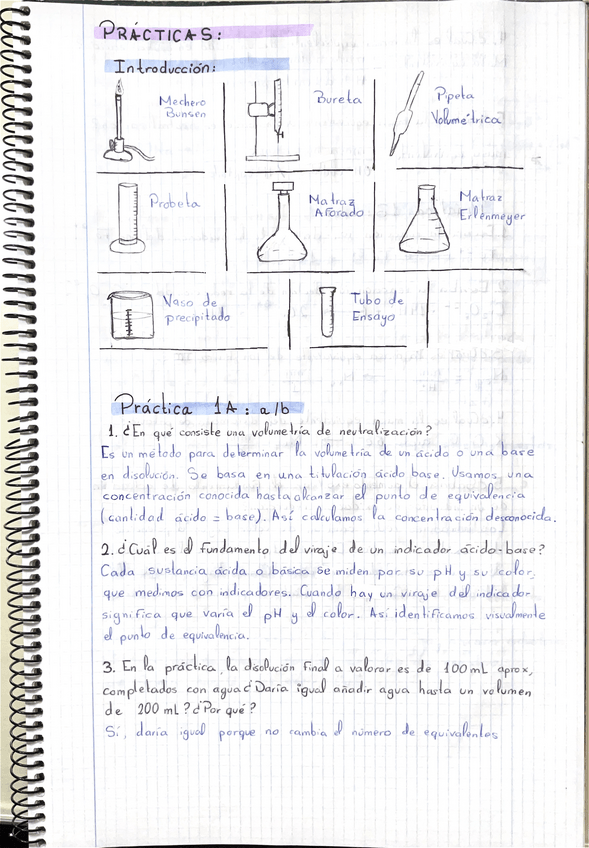 PRÁCTICAS:
Introducción:
Mechero
Bunsen
Bureta
Pipeta
Volumétrica
Probeta
Matraz
Aforado
Matraz
Erlenmeyer
Vaso de
precipitado
Tubo de
Ensayo
Práctica 1A: a/b
1. ¿En qué consiste una volumetría de neutralización?
Es un método para determinar la volumetría de un ácido o una base
en disolución. Se basa en una titulación ácido base. Usamos una
concentración conocida hasta alcanzar el punto de equivalencia
(cantidad ácido = base). Así calculamos la concentración desconocida.
2. ¿Cuál es el fundamento del viraje de un indicador ácido-base?
Cada sustancia ácida o básica se miden por su pH y su color,
que medimos con indicadores. Cuando hay un viraje del indicador
significa que varía el pH y el color. Así identificamos visualmente
el punto de equivalencia.
3. En la práctica, la disolución final a valorar es de 100 mL aprox,
completados con agua ¿Daría igual añadir agua hasta un volumen
de 200 mL? ¿Por qué?
Sí, daría igual porque no cambia el número de equivalentes